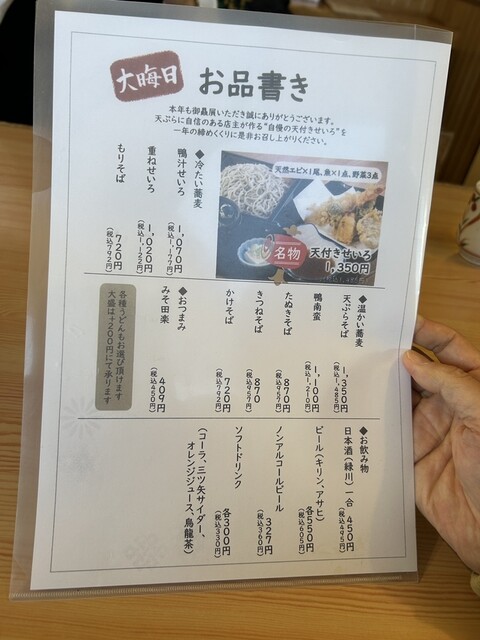 大晦日
お品書き
本年も御贔屓いただき誠にありがとうございます。
天ぷらに自信のある店主が作る"自慢の天付きせいろ"を
一年の締めくくりに是非お召し上がりください。
天然エビ×1尾、魚×1点、野菜3点
名物
天付きせいろ
1,350円
◆冷たい蕎麦
鴨汁せいろ 1,070円
(税込1,177円)
重ねせいろ 1,020円
(税込1,122円)
もりそば 720円
(税込792円)
◆温かい蕎麦
天ぷらそば 1,350円
(税込1,485円)
鴨南蛮 1,100円
(税込1,210円)
たぬきそば 870円
(税込957円)
きつねそば 870
(税込957円)
かけそば 720円
(税込792円)
◆おつまみ
みそ田楽 409円
(税込450円)
各種うどんもお選び頂けます
大盛は+200円にて承ります
◆お飲み物
日本酒(緑川)一合 450円
(税込495円)
ビール(キリン、アサヒ) 各550円
(税込605円)
ノンアルコールビール 327円
(税込360円)
ソフトドリンク 各300円
(税込330円)
(コーラ、三ツ矢サイダー、
オレンジジュース、烏龍茶)